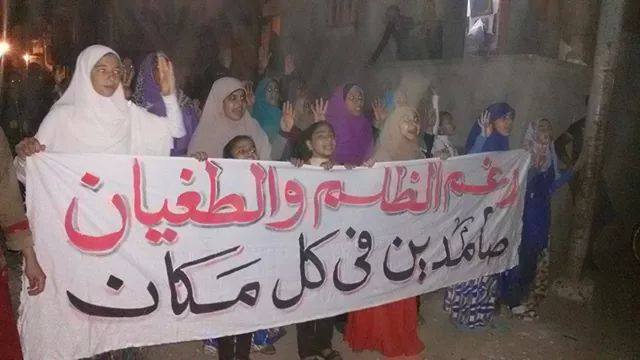 رغم الظلم والطغيان
صامدين فى كل مكان